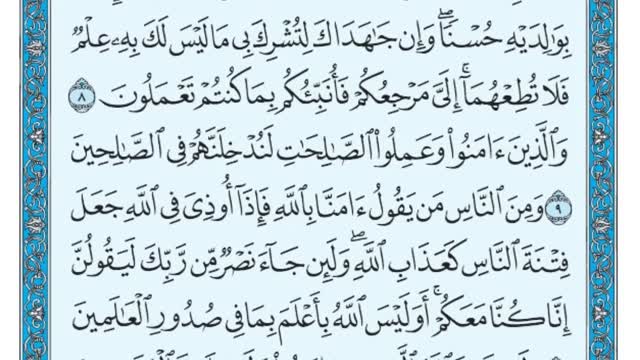 بِوَٰلِدَيْهِ حُسْنًاۖ وَإِن جَٰهَدَاكَ لِتُشْرِكَ بِى مَا لَيْسَ لَكَ بِهِۦ عِلْمٌ
فَلَا تُطِعْهُمَآۚ إِلَىَّ مَرْجِعُكُمْ فَأُنَبِّئُكُم بِمَا كُنتُمْ تَعْمَلُونَ ٨
وَٱلَّذِينَ ءَامَنُوا۟ وَعَمِلُوا۟ ٱلصَّٰلِحَٰتِ لَنُدْخِلَنَّهُمْ فِى ٱلصَّٰلِحِينَ
٩ وَمِنَ ٱلنَّاسِ مَن يَقُولُ ءَامَنَّا بِٱللَّهِ فَإِذَآ أُوذِىَ فِى ٱللَّهِ جَعَلَ
فِتْنَةَ ٱلنَّاسِ كَعَذَابِ ٱللَّهِۖ وَلَئِن جَآءَ نَصْرٌ مِّن رَّبِّكَ لَيَقُولُنَّ
إِنَّا كُنَّا مَعَكُمْۚ أَوَلَيْسَ ٱللَّهُ بِأَعْلَمَ بِمَا فِى صُدُورِ ٱلْعَٰلَمِينَ